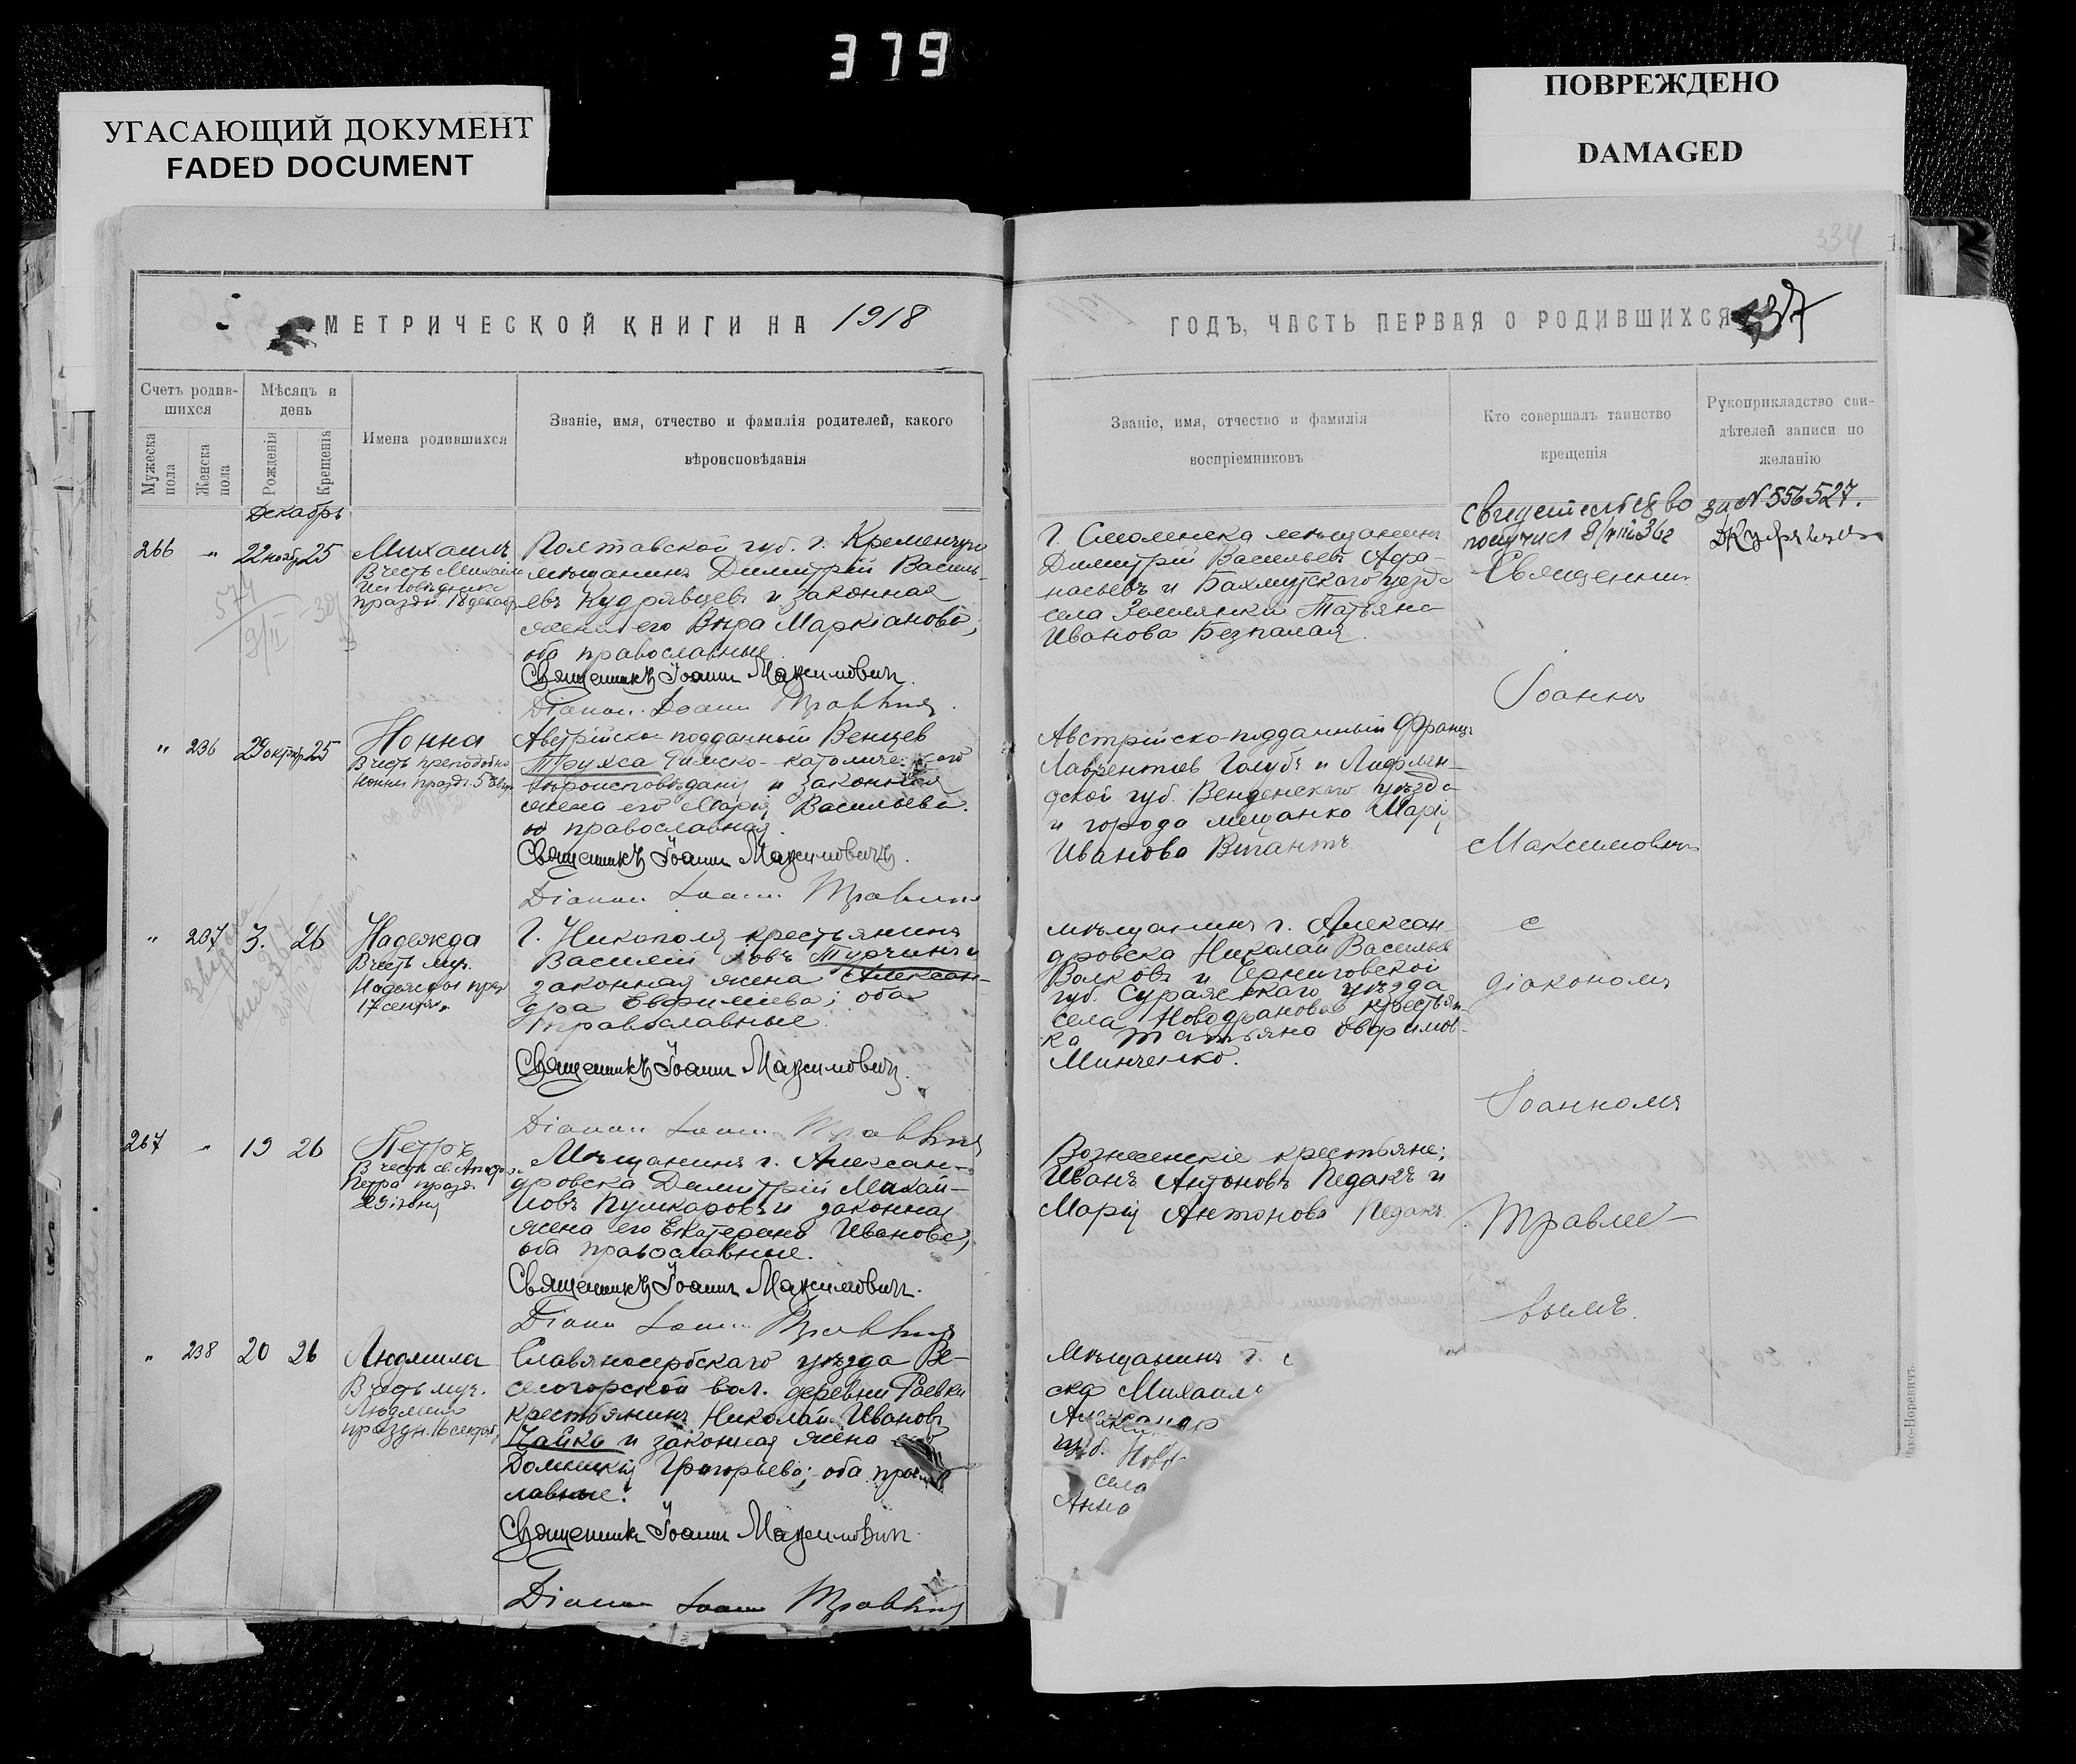 379
УГАСАЮЩИЙ ДОКУМЕНТ
FADED DOCUMENT
ПОВРЕЖДЕНО
DAMAGED
334
337
МЕТРИЧЕСКОЙ КНИГИ НА 1918
ГОДЪ, ЧАСТЬ ПЕРВАЯ О РОДИВШИХСЯ
Счетъ родив-
шихся
Мужеска
пола
Женска
пола
Мѣсяцъ и
день
Рожденія
Крещенія
Имена родившихся
Званіе, имя, отчество и фамилія родителей, какого
вѣроисповѣданія
Званіе, имя, отчество и фамилія
воспріемниковъ
Кто совершалъ таинство
крещенія
Рукоприкладство сви-
дѣтелей записи по
желанію
Декабрь
266 " 22 ноябр 25
Михаилъ
Въ честь Михаила
Исповѣдника
праздн. 18 декабр
Полтавской губ. г. Кременчуга
мѣщанинъ Димитрій Василь-
евъ Кудрявцевъ и законная
жена его Вѣра Маркіанова,
оба православные.
Священникъ Іоаннъ Максимович.
Діакон Іоанн
Г. Смоленска мѣщанинъ
Димитрій Васильевъ Афа-
насьевъ и Бахмутскаго уѣзда
села Землянки Татьяна
Иванова Безпалая.
Свидетельство за N 556527.
получил
Священникъ
Іоаннъ
Максимовичъ
с
діакономъ
Іоанномъ
Травле-
вымъ.
" 236 29 октяб 25
Нонна
Въ честь преподобно
Нонны праздн. 5 Февр.
Австрійско-подданный Венцев
Трукса Римско-католическаго
вѣроисповѣданія и законная
жена его Марія Васильева.
православная.
Священникъ Іоаннъ Максимовичъ.
Діакон Іоанн
Австрійско-подданный Францъ
Лаврентіев Голубъ и Лифлян-
дской губ. Венденскаго уѣзда
и города мещанка Марія
Иванова Вигантъ
" 237 3. 26
Надежда
Въ честь муч.
Надежды праз
17 сентяб.
Г. Никополя крестьянинъ
Василий Турчинъ и
законная жена Алексан-
дра Евфиміева; оба
православные.
Священникъ Іоаннъ Максимович.
Діакон Іоанн
мѣщанинъ г. Алексан-
дровска Николай Васильев
Волковъ и Черниговской
губ. Суражскаго уѣзда
села крестьян-
ка Татьяна Евфимов-
Минченко.
267 " 19 26
Петръ
Въ честь св. Апост.
Петра празд.
29 іюня
Мѣщанинъ г. Алексан-
дровска Димитрій Михай-
ловъ Пушкаровъ и законная
жена его Екатерина Иванова,
оба православные.
Священникъ Іоаннъ Максимович.
Діакон Іоанн
Вознесенскіе крестьяне:
Иванъ Антоновъ Педакъ и
Марія Антонова Педакъ.
" 238 20 26
Людмила
Въ честь муч.
Людмилы
праздн. 16 сентяб.
Славяносербскаго уѣзда Ве-
селогорской вол. деревни Раевки
крестьянинъ Николай Ивановъ
Чайка и законная жена его
Домникія Григорьева; оба
славные.
Священникъ Іоаннъ Максимович.
Діакон Іоанн
Мѣщанинъ г.
ска Михаил
Александр
губ. Ново
села
Анна